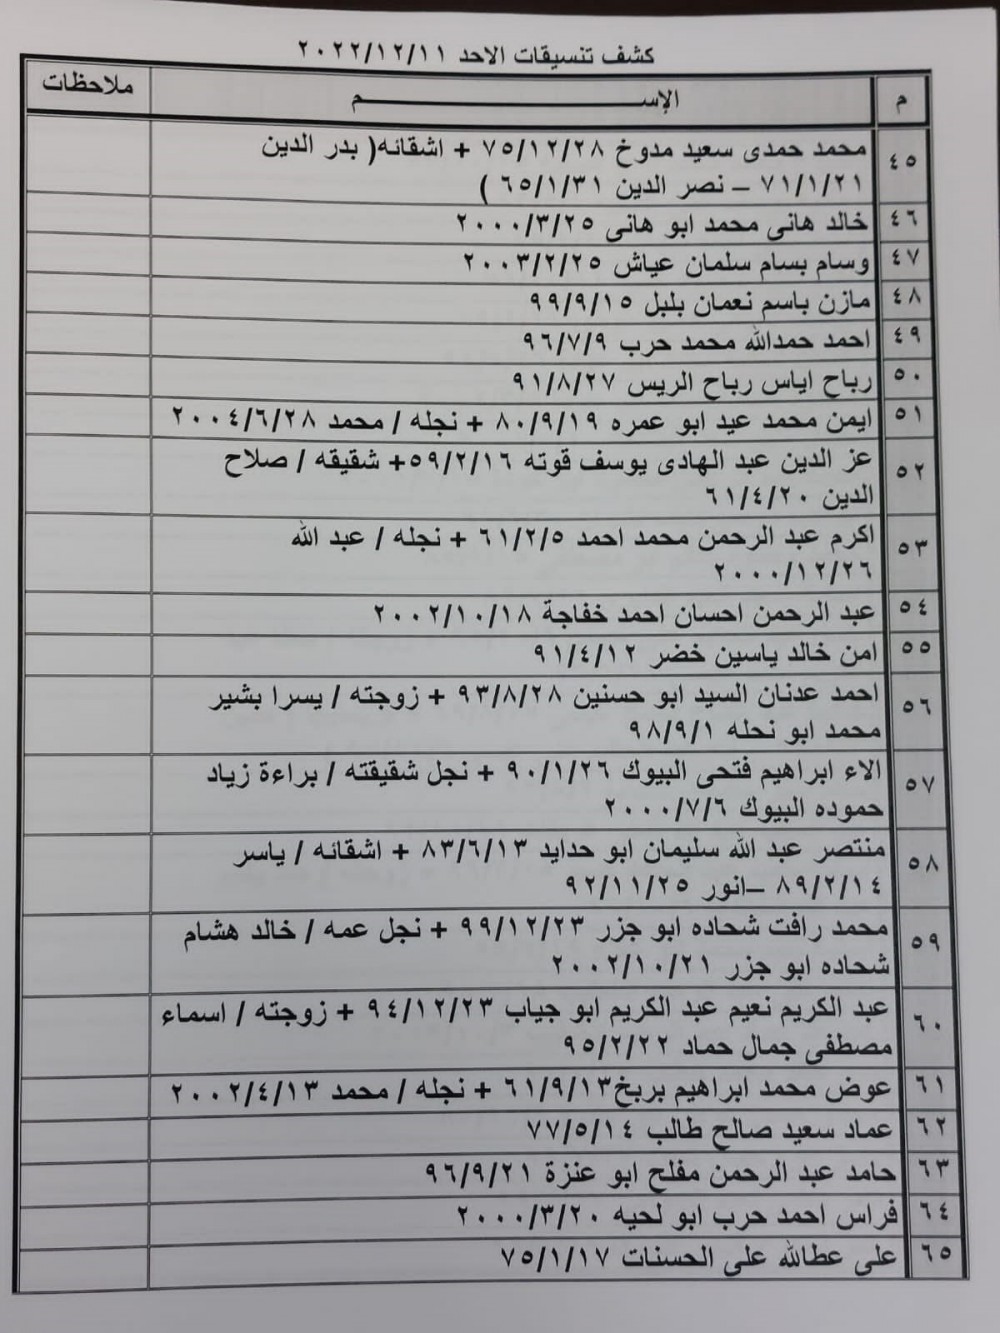 كشف تنسيقات الاحد ٢٠٢٢/١٢/١١
م الإســــــــــــم ملاحظات
٤٥ محمد حمدى سعيد مدوخ ٧٥/١٢/٢٨ + اشقائه( بدر الدين
٧١/١/٢١ – نصر الدين ٦٥/١/٣١ )
٤٦ خالد هانى محمد ابو هانى ٢٠٠٠/٣/٢٥
٤٧ وسام بسام سلمان عياش ٢٠٠٣/٢/٢٥
٤٨ مازن باسم نعمان بلبل ٩٩/٩/١٥
٤٩ احمد حمدالله محمد حرب ٩٦/٧/٩
٥٠ رباح اياس رباح الريس ٩١/٨/٢٧
٥١ ايمن محمد عيد ابو عمره ٨٠/٩/١٩ + نجله / محمد ٢٠٠٤/٦/٢٨
٥٢ عز الدين عبد الهادى يوسف قوته ٥٩/٢/١٦+ شقيقه / صلاح
الدين ٦١/٤/٢٠
٥٣ اكرم عبد الرحمن محمد احمد ٦١/٢/٥ + نجله / عبد الله
٢٠٠٠/١٢/٢٦
٥٤ عبد الرحمن احسان احمد خفاجة ٢٠٠٢/١٠/١٨
٥٥ امن خالد ياسين خضر ٩١/٤/١٢
٥٦ احمد عدنان السيد ابو حسنين ٩٣/٨/٢٨ + زوجته / يسرا بشير
محمد ابو نحله ٩٨/٩/١
٥٧ الاء ابراهيم فتحى البيوك ٩٠/١/٢٦ + نجل شقيقته / براءة زياد
حموده البيوك ٢٠٠٠/٧/٦
٥٨ منتصر عبد الله سليمان ابو حدايد ٨٣/٦/١٣ + اشقائه / ياسر
٨٩/٢/١٤ –انور ٩٢/١١/٢٥
٥٩ محمد رافت شحاده ابو جزر ٩٩/١٢/٢٣ + نجل عمه / خالد هشام
شحاده ابو جزر ٢٠٠٢/١٠/٢١
٦٠ عبد الكريم نعيم عبد الكريم ابو جياب ٩٤/١٢/٢٣ + زوجته / اسماء
مصطفى جمال حماد ٩٥/٢/٢٢
٦١ عوض محمد ابراهيم بربخ٦١/٩/١٣ + نجله / محمد ٢٠٠٢/٤/١٣
٦٢ عماد سعيد صالح طالب ٧٧/٥/١٤
٦٣ حامد عبد الرحمن مفلح ابو عنزة ٩٦/٩/٢١
٦٤ فراس احمد حرب ابو لحيه ٢٠٠٠/٣/٢٠
٦٥ على عطالله على الحسنات ٧٥/١/١٧